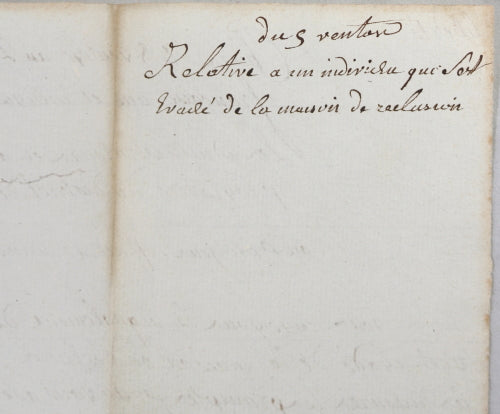 du 5 ventose
Relative a un individu qui s'est
evadé de la maison de reclusion